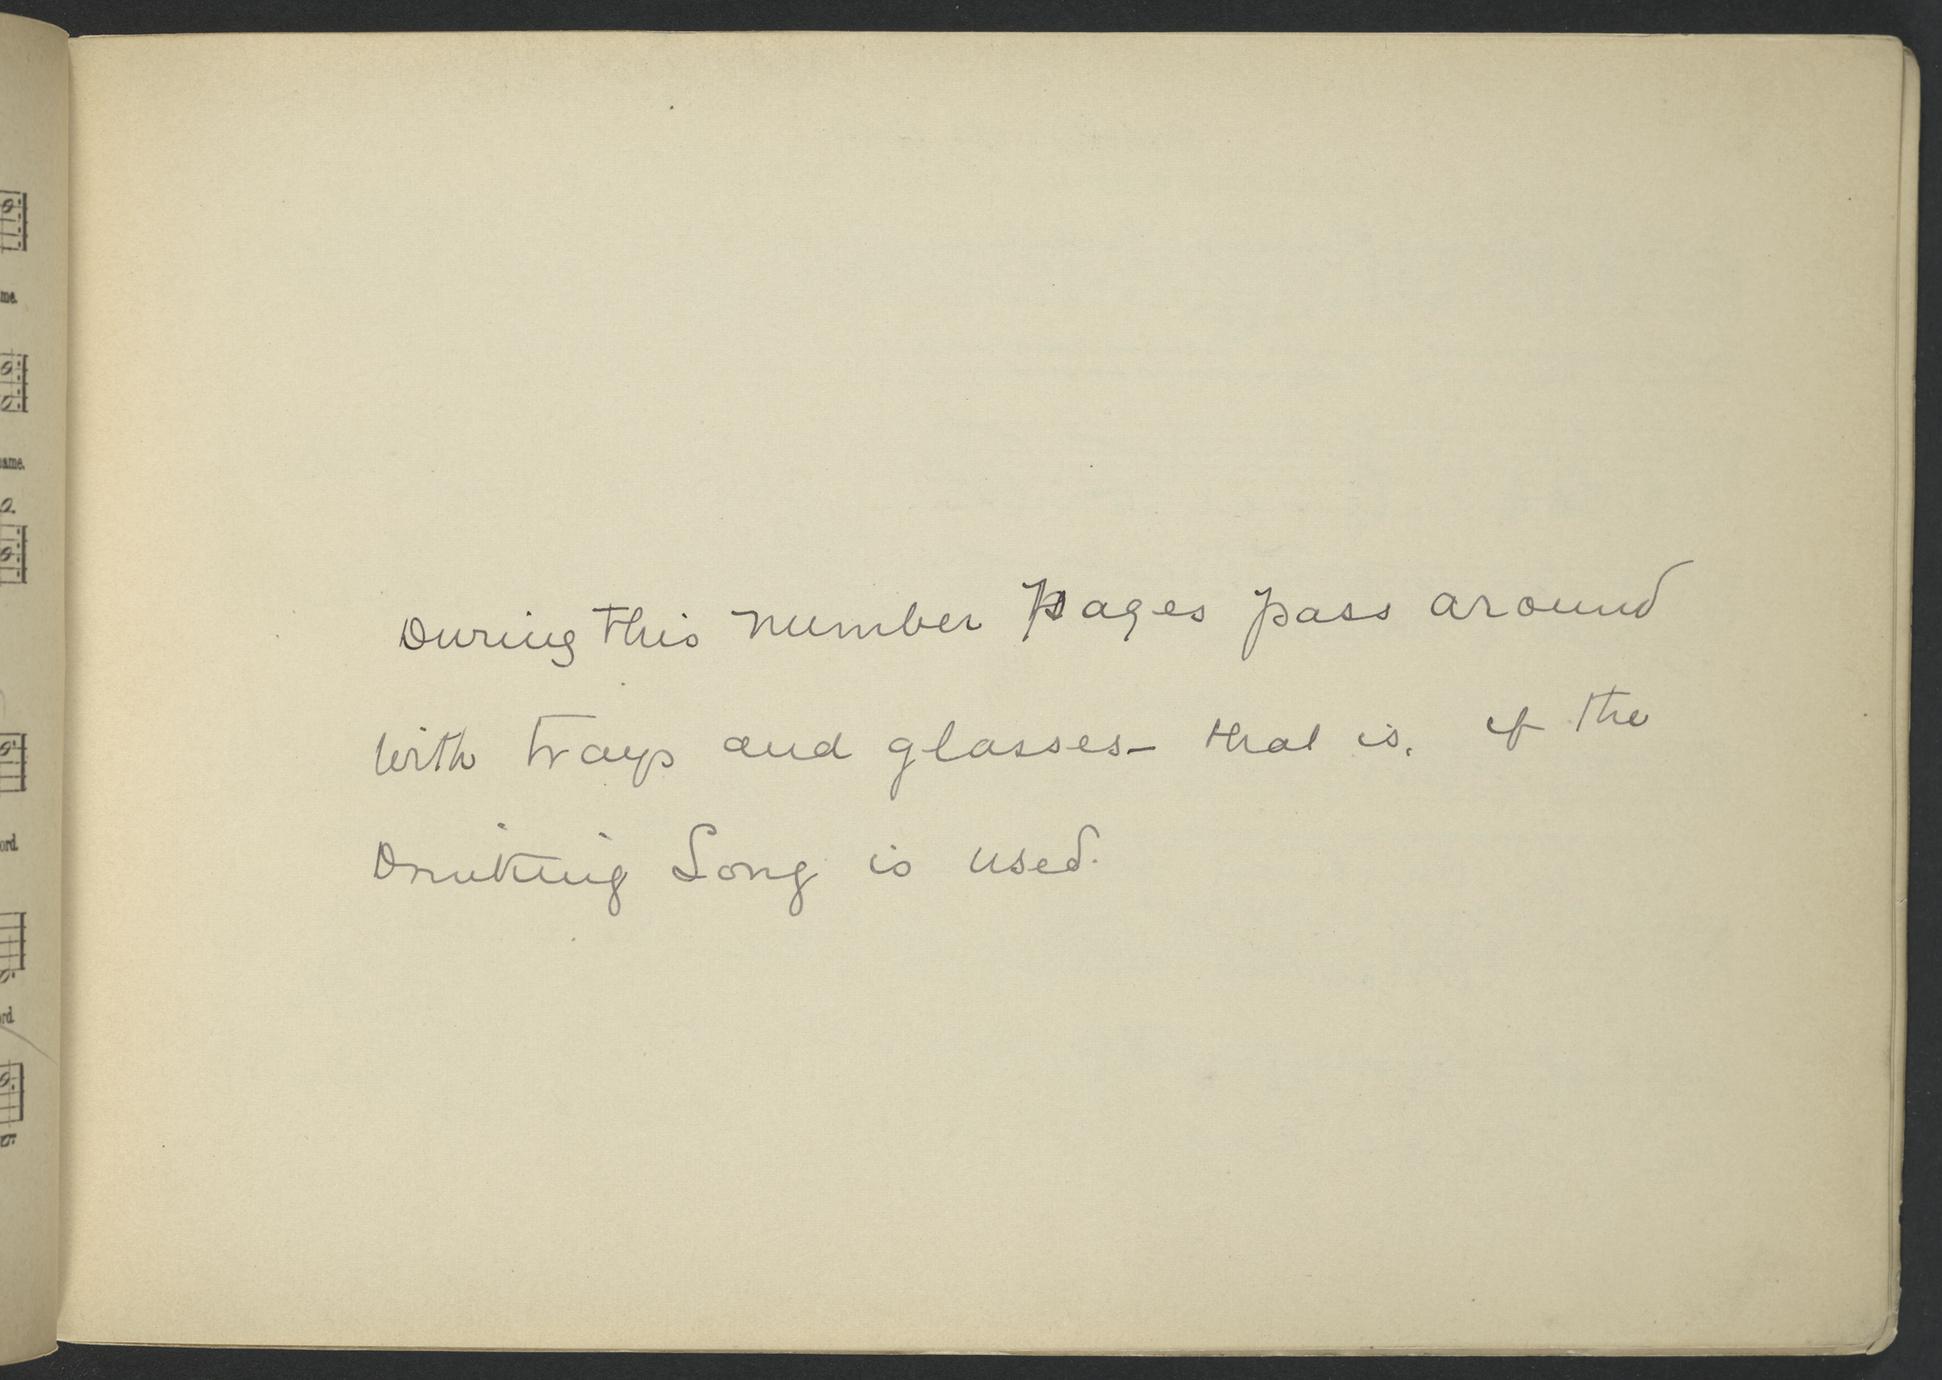 me.
ame.
ord.
ord
During this number Pages pass around
with trays and glasses— that is, if the
Drinking Song is used.